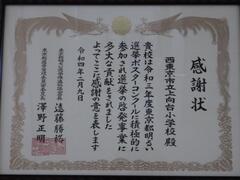 感謝状
西東京市立上向台小学校 殿
貴校は令和三年度東京都明るい
選挙ポスターコンクールに積極的に
参加され選挙の啓発事業に
多大な貢献をされました
よってここに感謝の意を表します
令和四年二月九日
遠藤勝裕
澤野正明